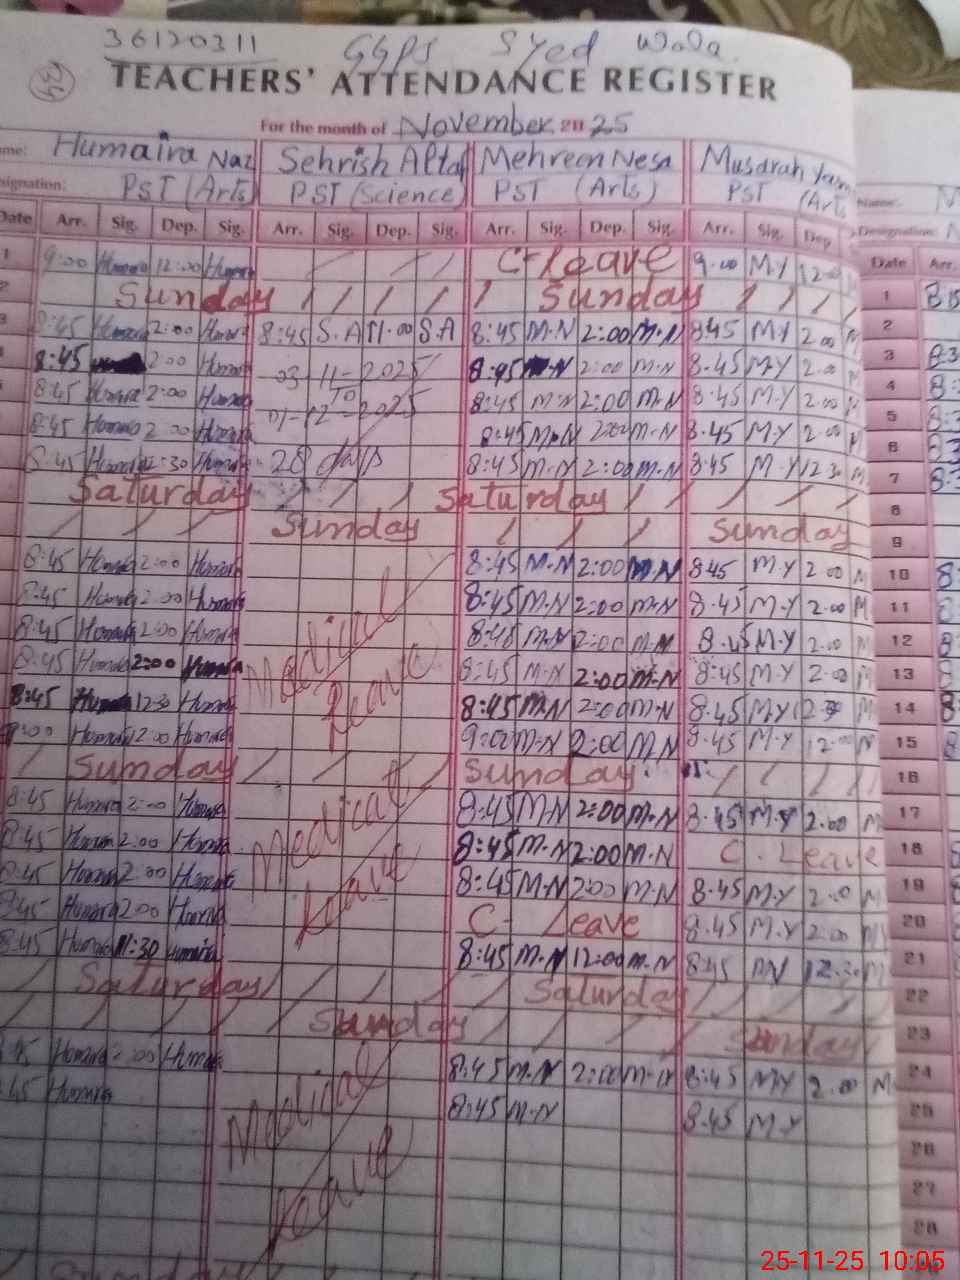 36120311 GGPS Syed Wala
34
TEACHERS' ATTENDANCE REGISTER
For the month of November 2025
Humaira Naz Sehrish Altaf Mehreen Nesa Musarah
PST (Arts) PST (Science) PST (Arts) PST (Arts
Name: M
Designation:
Date Arr. Sig. Dep. Sig. Arr. Sig. Dep. Sig. Arr. Sig. Dep. Sig. Arr. Sig. Dep
Date Arr.
1 9:00 Humaira 12:00 Humaira / / / C-Leave 9.00 M.Y 12.00
2 Sunday / / / / / Sunday / / /
3 8:45 Humaira 2:00 Humaira 8:45 S.A 11.00 S.A 8:45 M.N 2:00 M.N 8.45 M.Y 2.00 M
8:45 2:00 Humaira 03-11-2025 8:45 M.N 2:00 M.N 8.45 M.Y 2.00 M
8:45 Humaira 2:00 Humaira To 8:45 M.N 2:00 M.N 8.45 M.Y 2.00 M
01-12-2025
8:45 Humaira 2:00 Humaira 8:45 M.N 2:00 M.N 8.45 M.Y 2.00 M
8:45 Humaira 12:30 Humaira 28 days 8:45 M.N 2:00 M.N 8.45 M.Y 12.30 M
Saturday / / / Saturday / / / / /
/ / / / Sunday / / / Sunday
8:45 Humaira 2:00 Humaira 8:45 M.N 2:00 M.N 8.45 M.Y 2.00 M 10
8:45 Humaira 2:00 Humaira 8:45 M.N 2:00 M.N 8.45 M.Y 2.00 M 11
8:45 Humaira 2:00 Humaira Medical 8:45 M.N 2:00 M.N 8.45 M.Y 2.00 M 12
8:45 Humaira 2:00 Humaira Leave 8:45 M.N 2:00 M.N 8:45 M.Y 2.00 M 13
8:45 Humaira 12:30 Humaira 8:45 M.N 2:00 M.N 8.45 M.Y M 14
9:00 Humaira 12:00 Humaira 9:00 M.N 2:00 M.N 8.45 M.Y 12.00 M 15
/ Sunday / / / / Sunday / / / / / 16
8:45 Humaira 2:00 Humaira Medical 8:45 M.N 2:00 M.N 8.45 M.Y 2.00 M 17
8:45 Humaira 2:00 Humaira 8:45 M.N 2:00 M.N C. Leave 18
8:45 Humaira 2:00 Humaira Leave 8:45 M.N 2:00 M.N 8.45 M.Y 2.00 M 19
8:45 Humaira 2:00 Humaira C- Leave 8.45 M.Y 2:00 M 20
8:45 Humaira 11:30 Humaira 8:45 M.N 12:00 M.N 8:45 12.30 M 21
/ Saturday / / / / / Saturday / / / / 22
/ / / / / Sunday / / / / Sunday 23
Humaira 2:00 Humaira Medical 8:45 M.N 2:00 M.N 8:45 M.Y 2.00 M 24
Humaira 8:45 M.N 8.45 M.Y 25
Leave 26
27
28
25-11-25 10:05